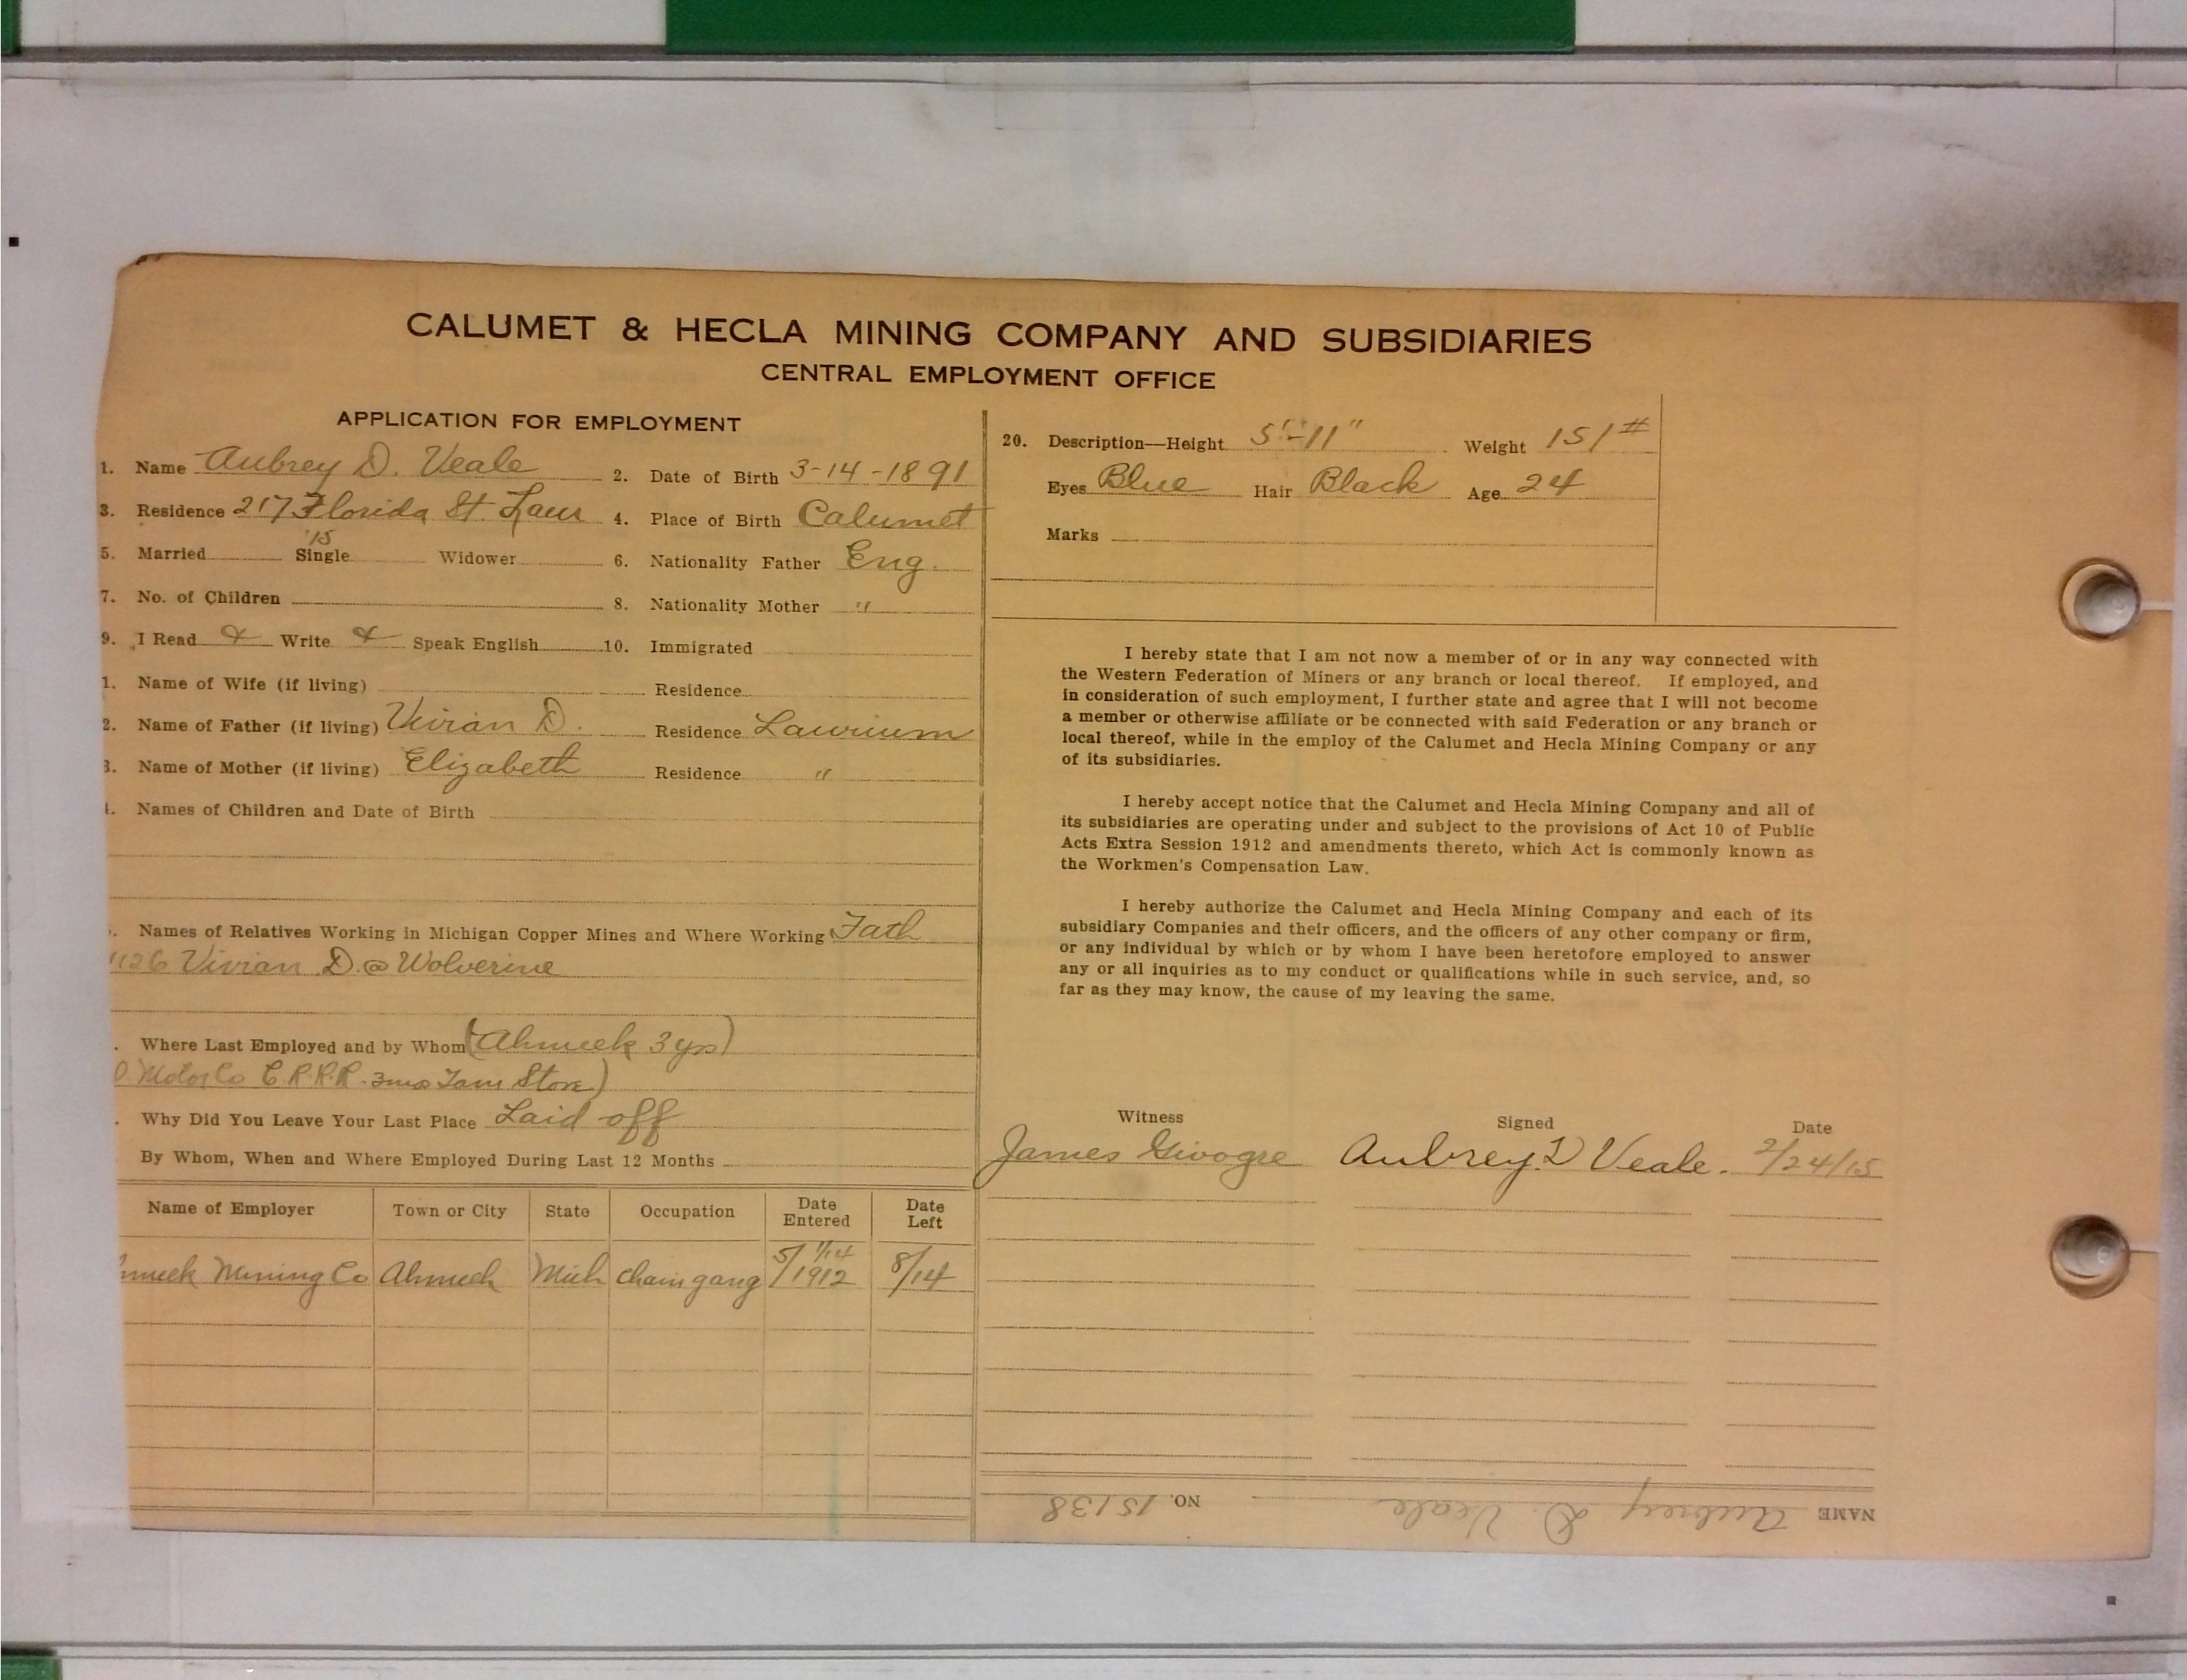 CALUMET & HECLA MINING COMPANY AND SUBSIDIARIES
CENTRAL EMPLOYMENT OFFICE
APPLICATION FOR EMPLOYMENT
1. Name Aubrey D. Veale 2. Date of Birth 3-14-1891
3. Residence 217 Florida St. Laur 4. Place of Birth Calumet
'15
5. Married Single Widower 6. Nationality Father Eng.
7. No. of Children 8. Nationality Mother "
9. I Read & Write & Speak English 10. Immigrated
1. Name of Wife (if living) Residence
2. Name of Father (if living) Vivian D. Residence Laurium
3. Name of Mother (if living) Elizabeth Residence "
4. Names of Children and Date of Birth
Names of Relatives Working in Michigan Copper Mines and Where Working Fath
Vivian D. @ Wolverine
Where Last Employed and by Whom (Ahmeek 3 yrs)
C.R.R.R. 3mo Store)
Why Did You Leave Your Last Place Laid off
By Whom, When and Where Employed During Last 12 Months
Name of Employer Town or City State Occupation Date Entered Date Left
hmeek Mining Co Ahmeek Mich chain gang 5/1912 1/14 8/14
20. Description—Height 5'-11" Weight 151#
Eyes Blue Hair Black Age 24
Marks
I hereby state that I am not now a member of or in any way connected with
the Western Federation of Miners or any branch or local thereof. If employed, and
in consideration of such employment, I further state and agree that I will not become
a member or otherwise affiliate or be connected with said Federation or any branch or
local thereof, while in the employ of the Calumet and Hecla Mining Company or any
of its subsidiaries.
I hereby accept notice that the Calumet and Hecla Mining Company and all of
its subsidiaries are operating under and subject to the provisions of Act 10 of Public
Acts Extra Session 1912 and amendments thereto, which Act is commonly known as
the Workmen's Compensation Law.
I hereby authorize the Calumet and Hecla Mining Company and each of its
subsidiary Companies and their officers, and the officers of any other company or firm,
or any individual by which or by whom I have been heretofore employed to answer
any or all inquiries as to my conduct or qualifications while in such service, and, so
far as they may know, the cause of my leaving the same.
Witness Signed Date
James Givogre Aubrey D Veale. 2/24/15
NAME Aubrey D. Veale NO. 15138